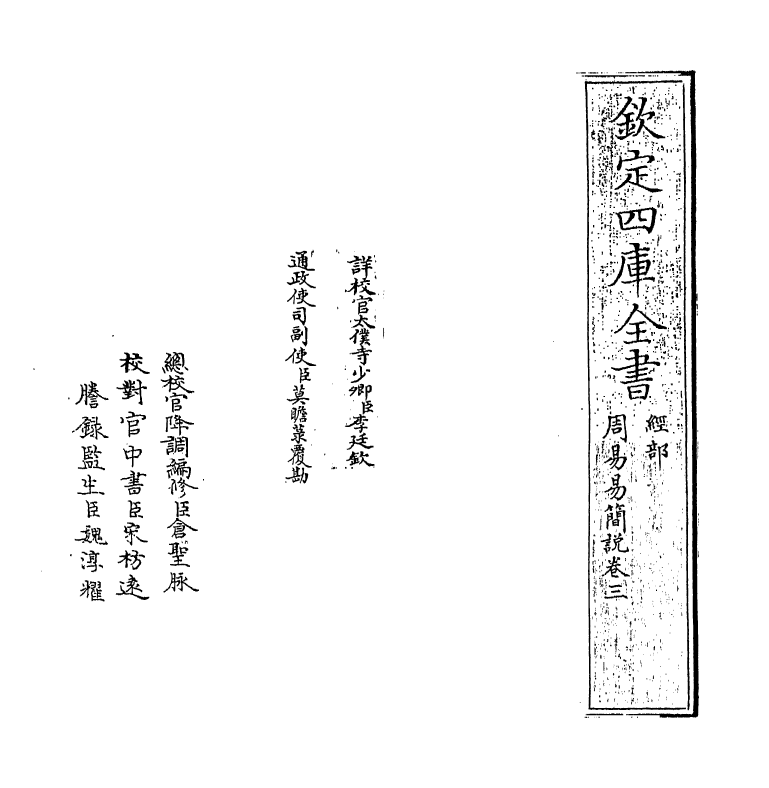 欽定四庫全書
經部
周易易簡説卷三
詳校官太僕寺少卿臣李廷欽
通政使司副使臣莫瞻菉覆勘
總校官降調編修臣倉聖脉
校對官中書臣宋枋遠
謄録監生臣魏淳耀